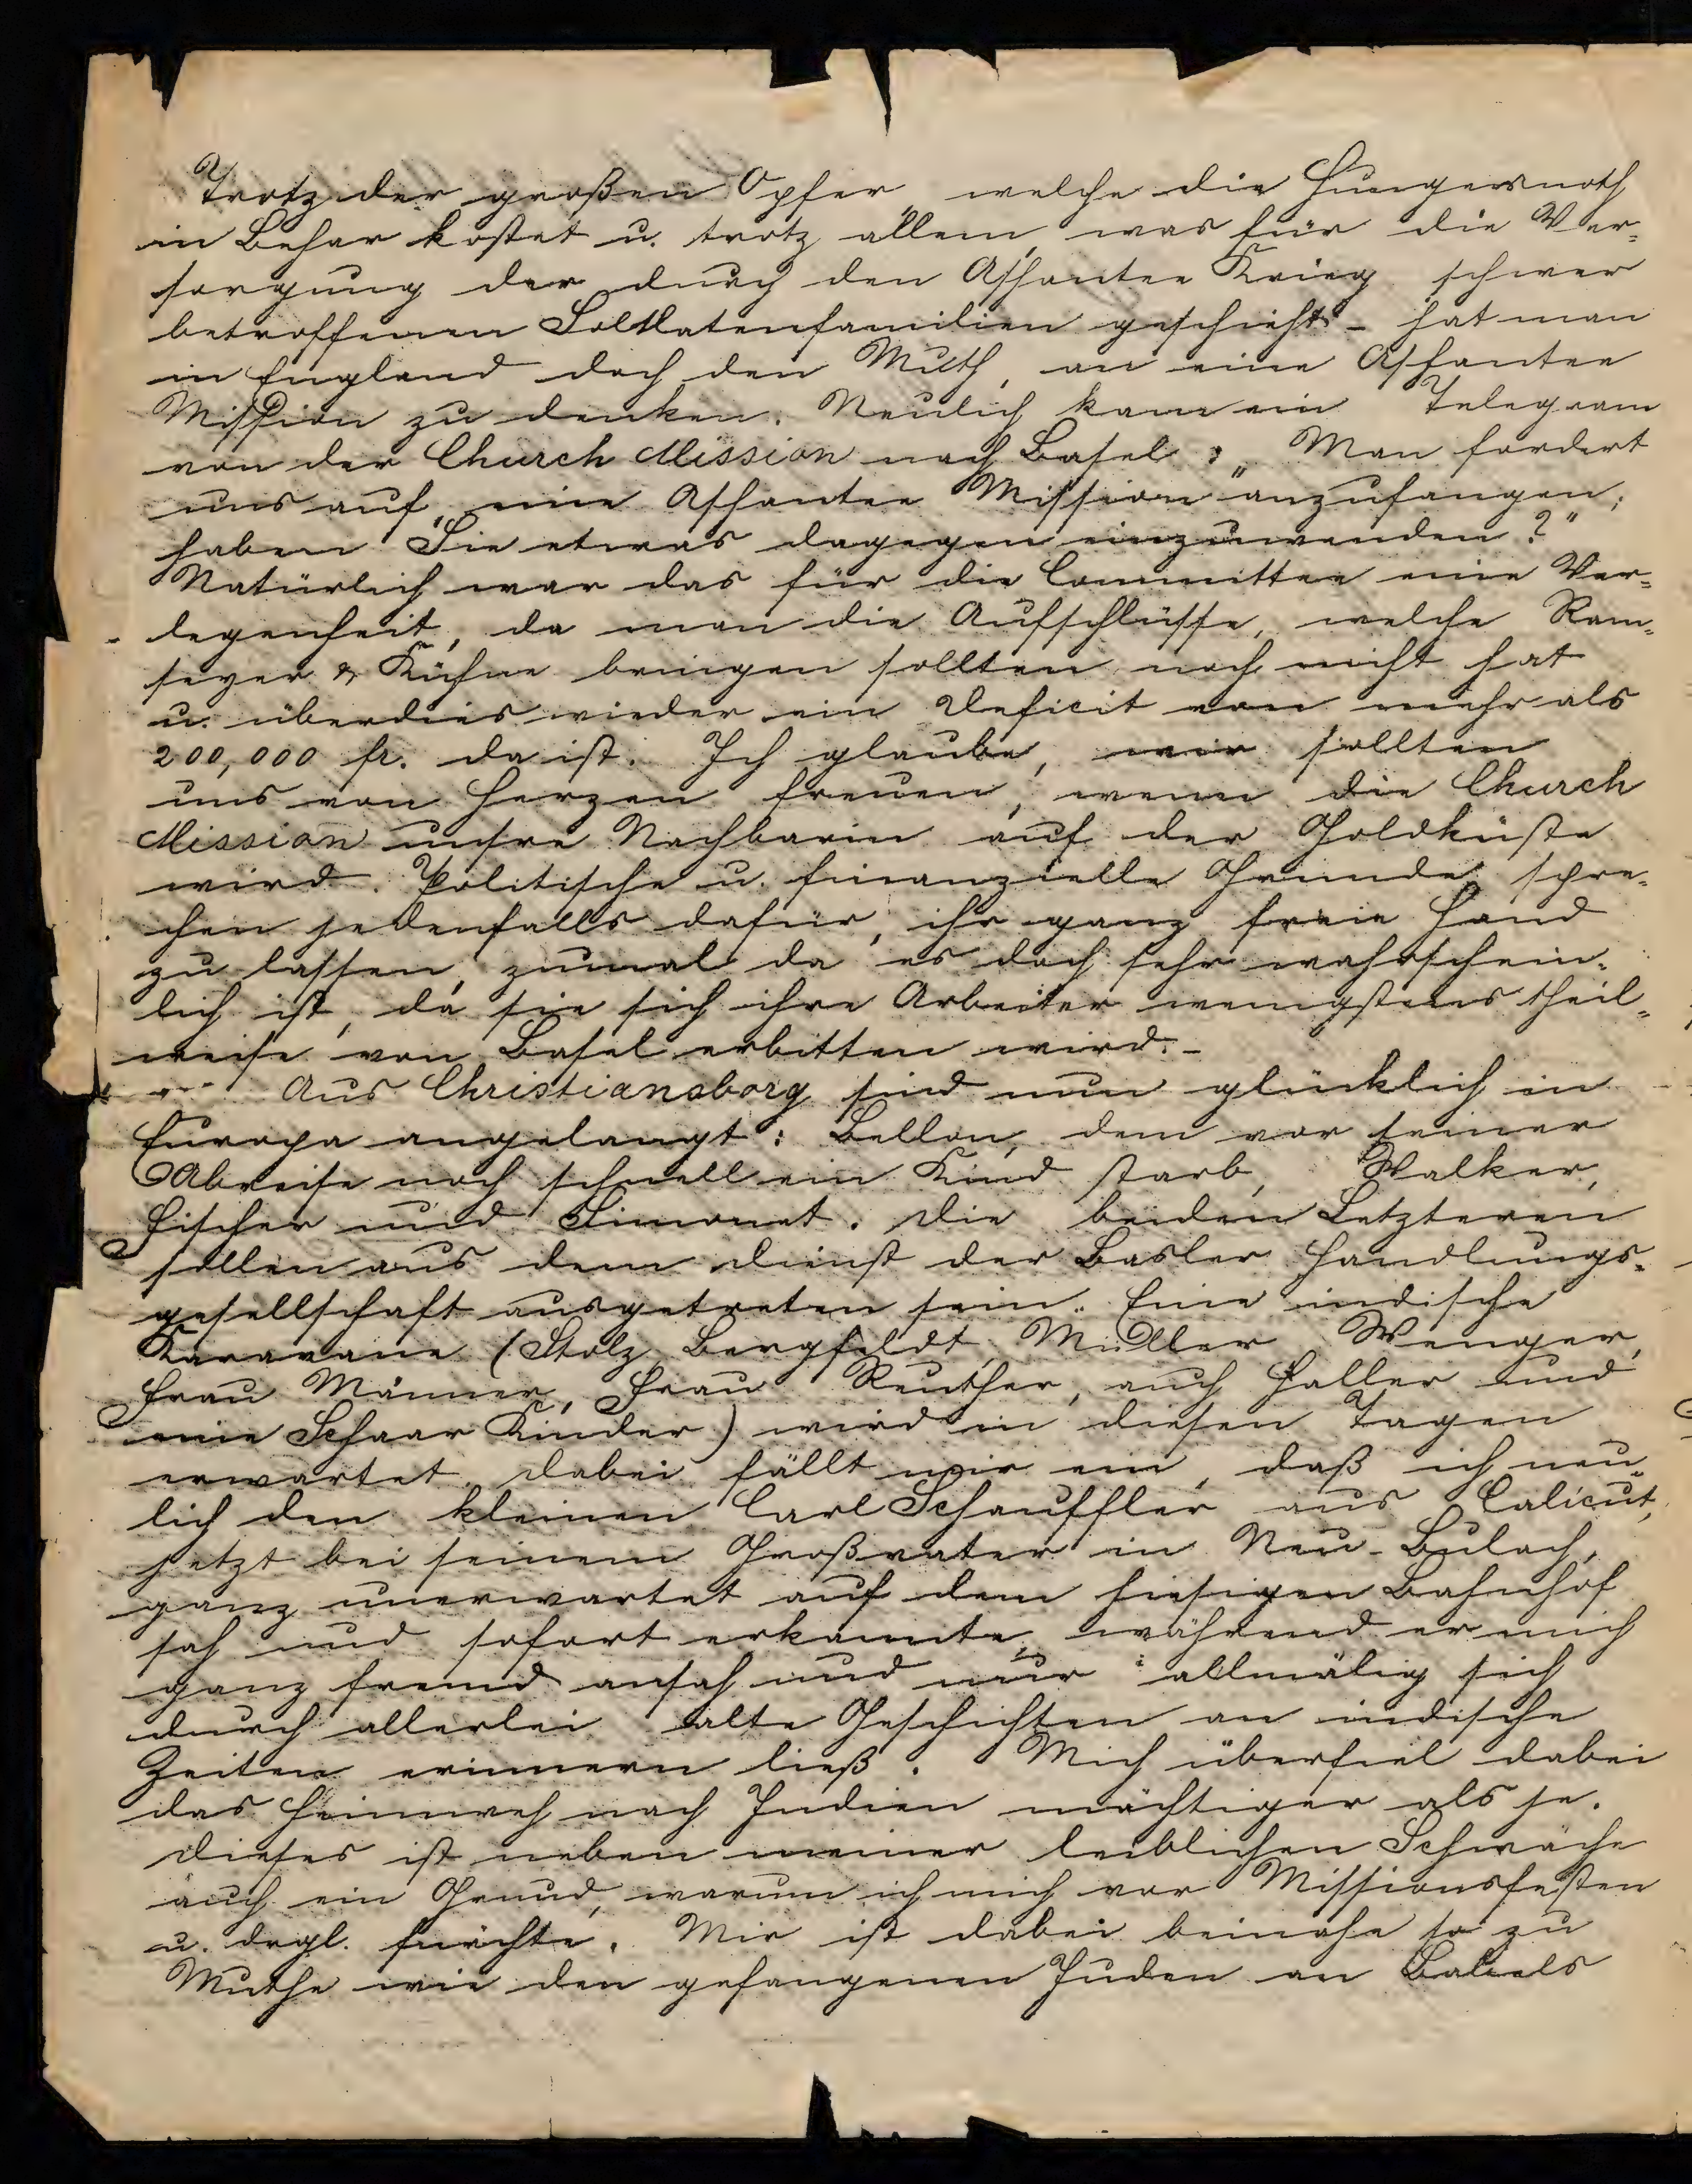 Trotz der großen Opfer, welche die Hungersnoth
in Behar kostet u. trotz allem, was für die Ver-
sorgung der durch den Ashantee Krieg schwer
betroffenen Soldatenfamilien geschieht - hat man
in England doch den Muth, an eine Ashantee
Mission zu denken. Neulich kam ein Telegram
von der Church Mission nach Basel: „Man fordert
uns auf, eine Ashantee Mission anzufangen;
haben Sie etwas dagegen einzuwenden?"
Natürlich war das für die Committee eine Ver-
legenheit, da man die Aufschlüsse, welche Ram-
seyer & Kühne bringen sollten noch nicht hat
u. überdies wieder ein Deficit von mehr als
200,000 fr. da ist. Ich glaube, wir sollten
uns von Herzen freuen, wenn die Church
Mission unsre Nachbarin auf der Goldküste
wird. Politische u. finanzielle Gründe spre-
chen jedenfalls dafür, ihr ganz freie Hand
zu lassen, zumal da es doch sehr wahrschein-
lich ist, da sie sich ihre Arbeiter wenigstens theil-
weise von Basel erbitten wird. -
Aus Christiansborg sind nun glücklich in
Europa angelangt: Bellon, dem vor seiner
Abreise noch schnell ein Kind starb, Walker,
Fischer und Simonet. Die beiden Letzteren
sollen aus dem Dienst der Basler Handlungs-
gesellschaft ausgetreten sein. Eine indische
Karavane (Stolz, Bergfeldt, Müller, Wenger,
Frau Männer, Frau Reuther, auch Haller und
eine Schaar Kinder) wird in diesen Tagen
erwartet. Dabei fällt mir ein, daß ich neu-
lich den kleinen Carl Schauffler aus Calicut,
jetzt bei seinem Großvater in Neu-Bulach,
ganz unerwartet auf dem hiesigen Bahnhof
sah und sofort erkannte, während er mich
ganz fremd ansah und nur allmälig sich
durch allerlei alte Geschichten an indische
Zeiten erinnern ließ. Mich überfiel dabei
das Heimweh nach Indien mächtiger als je.
Dieses ist neben meiner leiblichen Schwäche
auch ein Grund, warum ich mich vor Missionsfesten
u. drgl. fürchte. Mir ist dabei beinahe so zu
Muthe wie den gefangenen Juden an Babels